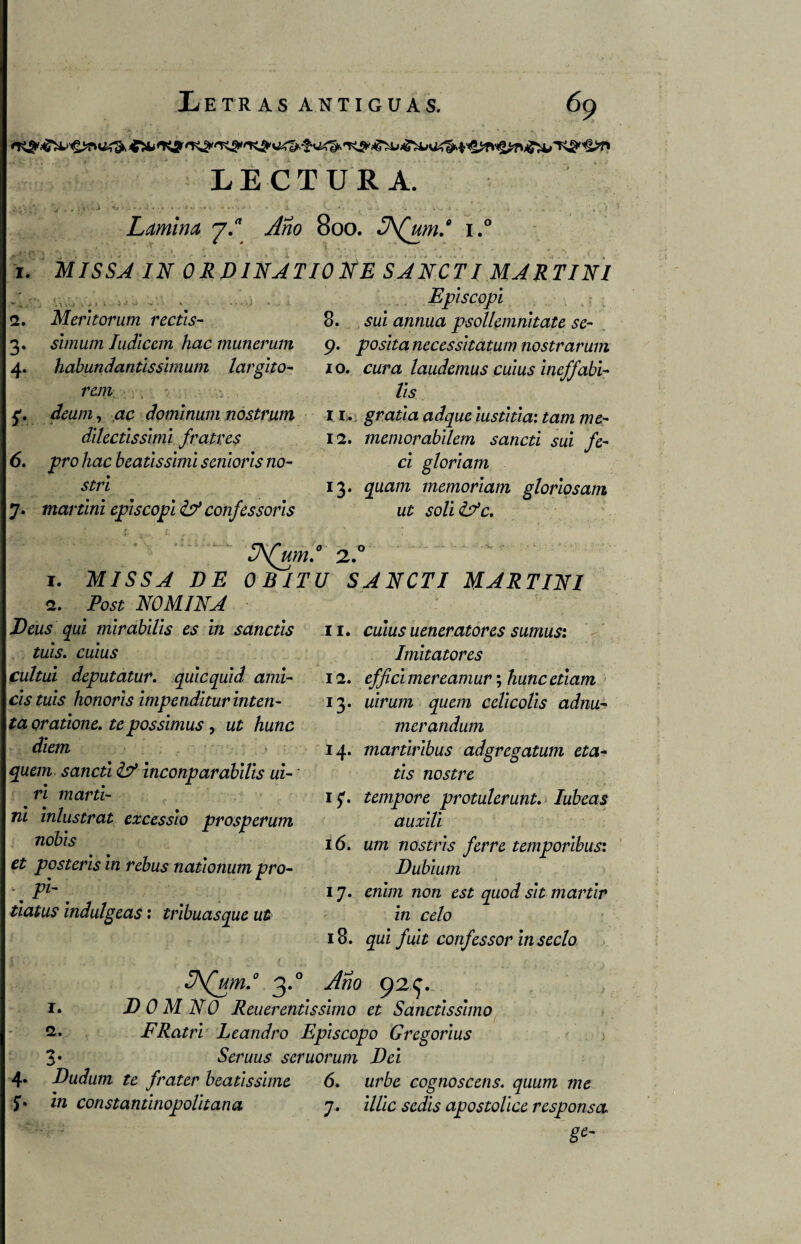 LETRAS ANTIGUAS. 69
LECTURA.
Lamina 7.ª Año 800. Num.º 1.º
1. MISSA IN ORDINATIONE SANCTI MARTINI
Episcopi
2. Meritorum rectis-
3. simum Iudicem hac munerum
4. habundantissimum largito-
rem
5. deum, ac dominum nostrum
dilectissimi fratres
6. pro hac beatissimi senioris no-
stri
7. martini episcopi & confessoris
8. sui annua psollemnitate se-
9. posita necessitatum nostrarum
10. cura laudemus cuius ineffabi-
lis
11. gratia adque iustitia: tam me-
12. memorabilem sancti sui fe-
ci gloriam
13. quam memoriam gloriosam
ut soli &c.
Num.º 2.º
1. MISSA DE OBITU SANCTI MARTINI
2. Post NOMINA
Deus qui mirabilis es in sanctis
tuis. cuius
cultui deputatur. quicquid ami-
cis tuis honoris impenditur inten-
ta oratione. te possimus, ut hunc
diem
quem sancti & inconparabilis ui-
ri marti-
ni inlustrat excessio prosperum
nobis
et posteris in rebus nationum pro-
pi-
tiatus indulgeas: tribuasque ut
11. cuius ueneratores sumus:
Imitatores
12. effici mereamur; hunc etiam
13. uirum quem celicolis adnu-
merandum
14. martiribus adgregatum eta-
tis nostre
15. tempore protulerunt. Iubeas
auxili
16. um nostris ferre temporibus:
Dubium
17. enim non est quod sit martir
in celo
18. qui fuit confessor in seclo
Num.º 3.º Año 925.
1. DOMNO Reuerentissimo et Sanctissimo
2. FRatri Leandro Episcopo Gregorius
3. Seruus seruorum Dei
4. Dudum te frater beatissime
5. in constantinopolitana
6. urbe cognoscens. quum me
7. illic sedis apostolice responsa
ge-